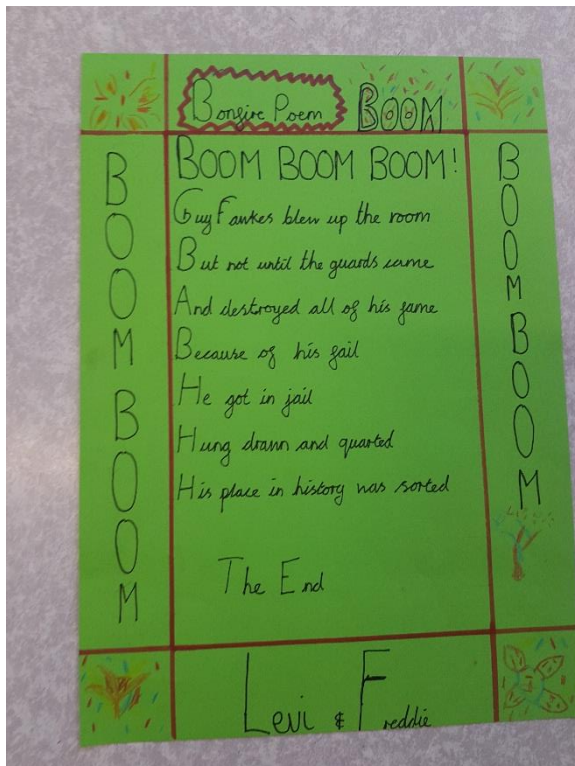 Bonfire Poem BOOM
BOOM BOOM BOOM!
Guy Fawkes blew up the room
But not until the guards came
And destroyed all of his fame
Because of his fail
He got in jail
Hung drawn and quarted
His place in history was sorted
The End
Levi & Freddie
BOOM BOOM
BOOM BOOM